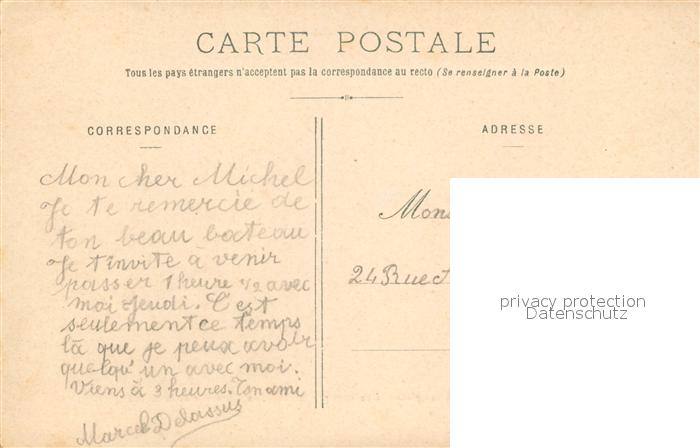 CARTE POSTALE
Tous les pays étrangers n'acceptent pas la correspondance au recto (Se renseigner à la Poste)
CORRESPONDANCE
Mon cher Michel
Je te remercie de
ton beau bateau
Je t'invite à venir
passer 1 heure ½ avec
moi Jeudi. C'est
seulement ce temps
là que je peux avoir
quelqu'un avec moi.
Viens à 3 heures. Ton ami
Marcel Delassus
ADRESSE
Mons
24 Rue
privacy protection
Datenschutz